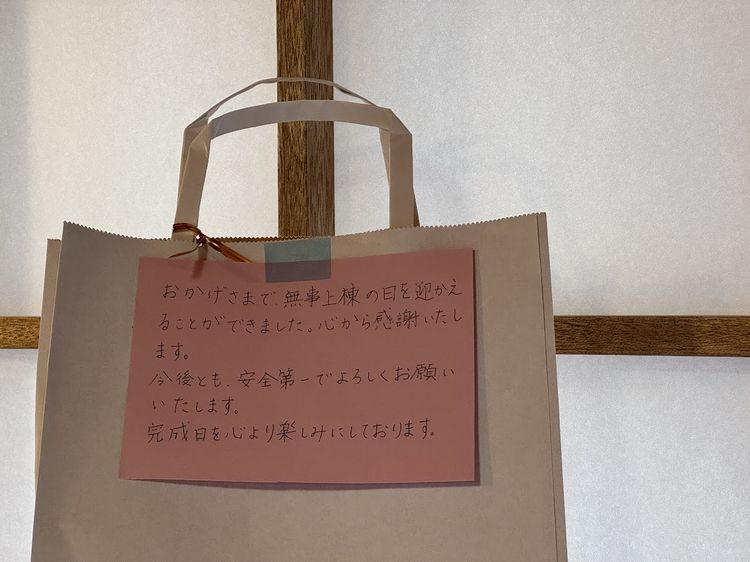 おかげさまで、無事上棟の日を迎かえ
ることができました。心から感謝いたし
ます。
今後とも、安全第一でよろしくお願い
いたします。
完成日を心より楽しみにしております。